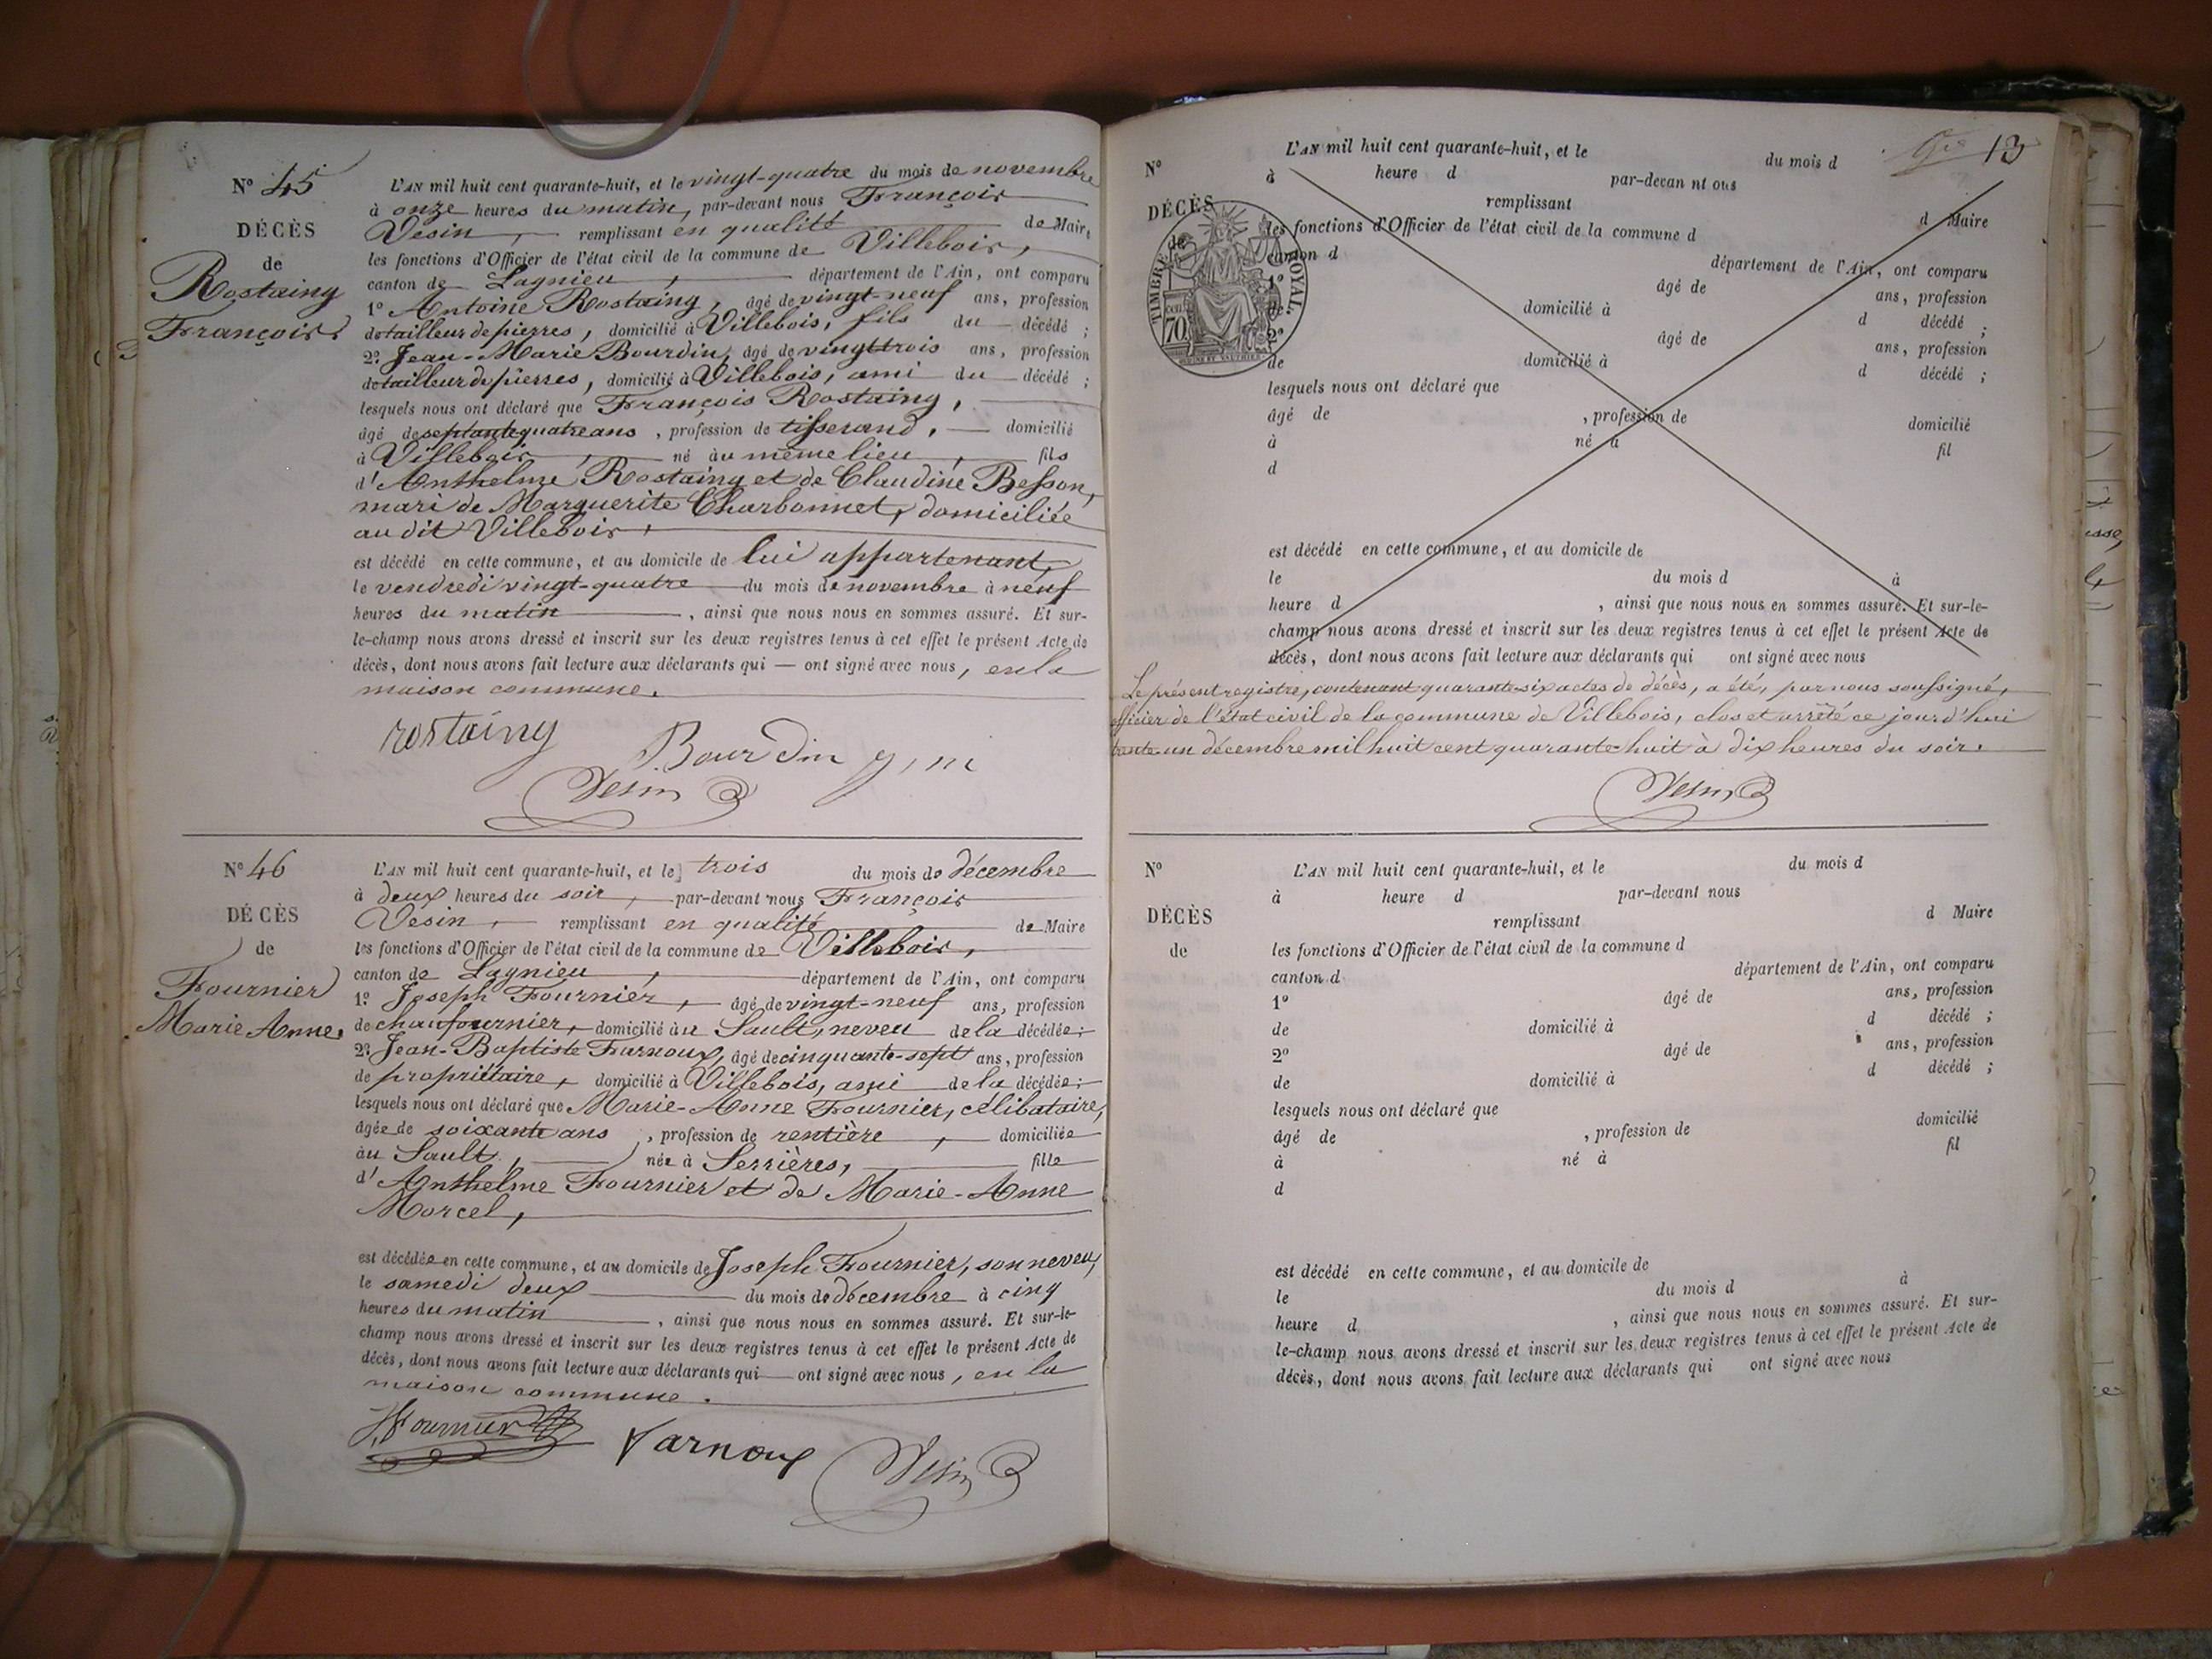 N° 45
DÉCÈS
de
Rostaing
François
L'AN mil huit cent quarante-huit, et le vingt-quatre du mois de novembre
à onze heures du matin, par-devant nous François
Vesin, remplissant en qualité de Maire
les fonctions d'Officier de l'état civil de la commune de Villebois,
canton de Lagnieu, département de l'Ain, ont comparu
1° Antoine Rostaing, âgé de vingt-neuf ans, profession
de tailleur de pierres, domicilié à Villebois, fils du décédé ;
2° Jean-Marie Bourdin, âgé de vingt trois ans, profession
de tailleur de pierres, domicilié à Villebois, ami du décédé ;
lesquels nous ont déclaré que François Rostaing,
âgé de septante quatre ans, profession de tisserand, domicilié
à Villebois, né au même lieu, fils
d'Anthelme Rostaing et de Claudine Besson,
mari de Marguerite Charbonnet, domiciliée
au dit Villebois,
est décédé en cette commune, et au domicile de lui appartenant,
le vendredi vingt-quatre du mois de novembre à neuf
heures du matin, ainsi que nous nous en sommes assuré. Et sur-
le-champ nous avons dressé et inscrit sur les deux registres tenus à cet effet le présent Acte de
décès, dont nous avons fait lecture aux déclarants qui — ont signé avec nous, en la
maison commune.
rostaing
Bourdin
Vesin
N° 46
DÉCÈS
de
Fournier
Marie Anne
L'AN mil huit cent quarante-huit, et le trois du mois de décembre
à deux heures du soir, par-devant nous François
Vesin, remplissant en qualité de Maire
les fonctions d'Officier de l'état civil de la commune de Villebois,
canton de Lagnieu, département de l'Ain, ont comparu
1° Joseph Fournier, âgé de vingt-neuf ans, profession
de chaufournier, domicilié au Sault, neveu de la décédée ;
2° Jean-Baptiste Farnoux, âgé de cinquante-sept ans, profession
de propriétaire, domicilié à Villebois, ami de la décédée ;
lesquels nous ont déclaré que Marie-Anne Fournier, célibataire,
âgée de soixante ans, profession de rentière, domiciliée
au Sault, née à Serrières, fille
d'Anthelme Fournier et de Marie-Anne
Morcel,
est décédée en cette commune, et au domicile de Joseph Fournier, son neveu,
le samedi deux du mois de décembre à cinq
heures du matin, ainsi que nous nous en sommes assuré. Et sur-le-
champ nous avons dressé et inscrit sur les deux registres tenus à cet effet le présent Acte de
décès, dont nous avons fait lecture aux déclarants qui — ont signé avec nous, en la
maison commune.
J. Fournier
Farnoux
Vesin
13
N°
DÉCÈS
de
TIMBRE ROYAL
70
L'AN mil huit cent quarante-huit, et le du mois d
à heure d par-devan nt ous
remplissant d Maire
les fonctions d'Officier de l'état civil de la commune d
canton d département de l'Ain, ont comparu
1° âgé de ans, profession
de domicilié à d décédé ;
2° âgé de ans, profession
de domicilié à d décédé ;
lesquels nous ont déclaré que
âgé de , profession de domicilié
à né à fil
d
est décédé en cette commune, et au domicile de
le du mois d à
heure d , ainsi que nous nous en sommes assuré. Et sur-le-
champ nous avons dressé et inscrit sur les deux registres tenus à cet effet le présent Acte de
décès, dont nous avons fait lecture aux déclarants qui ont signé avec nous
Le présent registre, contenant quarante-six actes de décès, a été, par nous soussigné,
officier de l'état civil de la commune de Villebois, clos et arrêté ce jourd'hui
trente-un décembre mil huit cent quarante-huit à dix heures du soir.
Vesin
N°
DÉCÈS
de
L'AN mil huit cent quarante-huit, et le du mois d
à heure d par-devant nous
remplissant d Maire
les fonctions d'Officier de l'état civil de la commune d
canton d département de l'Ain, ont comparu
1° âgé de ans, profession
de domicilié à d décédé ;
2° âgé de ans, profession
de domicilié à d décédé ;
lesquels nous ont déclaré que
âgé de , profession de domicilié
à né à fil
d
est décédé en cette commune, et au domicile de
le du mois d à
heure d , ainsi que nous nous en sommes assuré. Et sur-
le-champ nous avons dressé et inscrit sur les deux registres tenus à cet effet le présent Acte de
décès, dont nous avons fait lecture aux déclarants qui ont signé avec nous